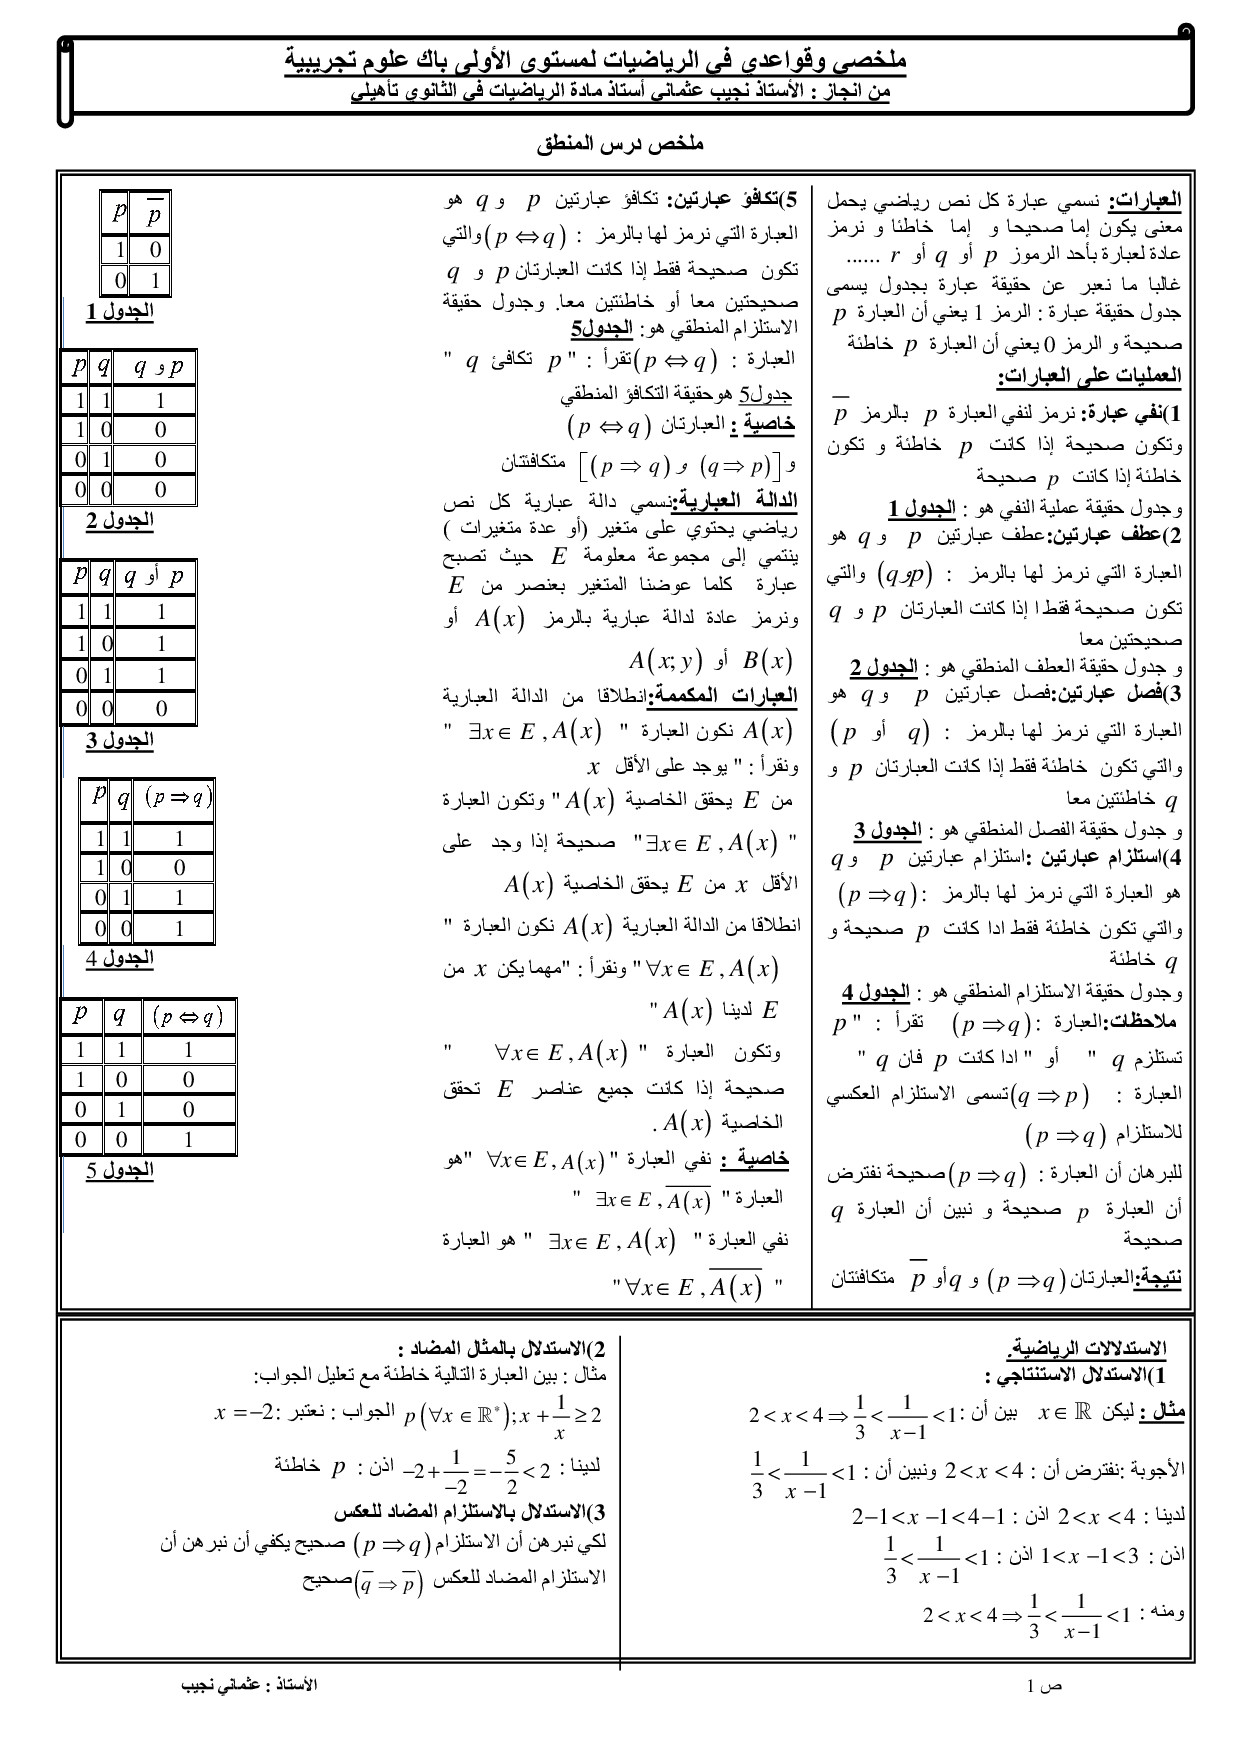 ملخصي وقواعدي في الرياضيات لمستوى الأولى باك علوم تجريبية
من انجاز : الأستاذ نجيب عثماني أستاذ مادة الرياضيات في الثانوي تأهيلي
ملخص درس المنطق
العبارات: نسمي عبارة كل نص رياضي يحمل
معنى يكون إما صحيحا و إما خاطئا و نرمز
عادة لعبارة بأحد الرموز p أو q أو r ......
غالبا ما نعبر عن حقيقة عبارة بجدول يسمى
جدول حقيقة عبارة : الرمز 1 يعني أن العبارة p
صحيحة و الرمز 0 يعني أن العبارة p خاطئة
العمليات على العبارات:
1)نفي عبارة: نرمز لنفي العبارة p بالرمز p̅
وتكون صحيحة إذا كانت p خاطئة و تكون
خاطئة إذا كانت p صحيحة
وجدول حقيقة عملية النفي هو : الجدول 1
2)عطف عبارتين:عطف عبارتين p و q هو
العبارة التي نرمز لها بالرمز : (p و q) والتي
تكون صحيحة فقط ا إذا كانت العبارتان p و q
صحيحتين معا
و جدول حقيقة العطف المنطقي هو : الجدول 2
3)فصل عبارتين:فصل عبارتين p و q هو
العبارة التي نرمز لها بالرمز : (p أو q)
والتي تكون خاطئة فقط إذا كانت العبارتان p و
q خاطئتين معا
و جدول حقيقة الفصل المنطقي هو : الجدول 3
4)استلزام عبارتين :استلزام عبارتين p و q
هو العبارة التي نرمز لها بالرمز : (p ⇒ q)
والتي تكون خاطئة فقط ادا كانت p صحيحة و
q خاطئة
وجدول حقيقة الاستلزام المنطقي هو : الجدول 4
ملاحظات:العبارة : (p ⇒ q) تقرأ : " p
تستلزم q " أو " ادا كانت p فان q "
العبارة : (q ⇒ p) تسمى الاستلزام العكسي
للاستلزام (p ⇒ q)
للبرهان أن العبارة : (p ⇒ q) صحيحة نفترض
أن العبارة p صحيحة و نبين أن العبارة q
صحيحة
نتيجة:العبارتان (p ⇒ q) و q أو p̅ متكافئتان
5)تكافؤ عبارتين: تكافؤ عبارتين p و q هو
العبارة التي نرمز لها بالرمز : (p ⇔ q) والتي
تكون صحيحة فقط إذا كانت العبارتان p و q
صحيحتين معا أو خاطئتين معا. وجدول حقيقة
الاستلزام المنطقي هو: الجدول5
العبارة : (p ⇔ q) تقرأ : " p تكافئ q "
جدول5 هوحقيقة التكافؤ المنطقي
خاصية : العبارتان (p ⇔ q)
و [(q ⇒ p) و (p ⇒ q)] متكافئتان
الدالة العبارية:نسمي دالة عبارية كل نص
رياضي يحتوي على متغير (أو عدة متغيرات )
ينتمي إلى مجموعة معلومة E حيث تصبح
عبارة كلما عوضنا المتغير بعنصر من E
ونرمز عادة لدالة عبارية بالرمز A(x) أو
B(x) أو A(x; y)
العبارات المكممة:انطلاقا من الدالة العبارية
A(x) نكون العبارة " ∃x∈E , A(x) "
ونقرأ : " يوجد على الأقل x
من E يحقق الخاصية A(x) " وتكون العبارة
" ∃x∈E , A(x) " صحيحة إذا وجد على
الأقل x من E يحقق الخاصية A(x)
انطلاقا من الدالة العبارية A(x) نكون العبارة "
∀x∈E , A(x) " ونقرأ : "مهما يكن x من
E لدينا A(x) "
وتكون العبارة " ∀x∈E , A(x) "
صحيحة إذا كانت جميع عناصر E تحقق
الخاصية A(x) .
خاصية : نفي العبارة " ∀x∈E , A(x) "هو
العبارة " ∃x∈E , A̅(̅x̅)̅ "
نفي العبارة " ∃x∈E , A(x) " هو العبارة
" ∀x∈E , A̅(̅x̅)̅ "
p p̅
1 0
0 1
الجدول 1
p q p و q
1 1 1
1 0 0
0 1 0
0 0 0
الجدول 2
p q p أو q
1 1 1
1 0 1
0 1 1
0 0 0
الجدول 3
p q (p ⇒ q)
1 1 1
1 0 0
0 1 1
0 0 1
الجدول 4
p q (p ⇔ q)
1 1 1
1 0 0
0 1 0
0 0 1
الجدول 5
الاستدلالات الرياضية.
1)الاستدلال الاستنتاجي :
مثال : ليكن x∈ℝ بين أن : 2 < x < 4 ⇒ 1/3 < 1/(x−1) < 1
الأجوبة :نفترض أن : 2 < x < 4 ونبين أن : 1/3 < 1/(x−1) < 1
لدينا : 2 < x < 4 اذن : 2−1 < x−1 < 4−1
اذن : 1 < x−1 < 3 اذن : 1/3 < 1/(x−1) < 1
ومنه : 2 < x < 4 ⇒ 1/3 < 1/(x−1) < 1
2)الاستدلال بالمثال المضاد :
مثال : بين العبارة التالية خاطئة مع تعليل الجواب:
p (∀x∈ℝ*); x + 1/x ≥ 2 الجواب : نعتبر : x = −2
لدينا : −2 + 1/−2 = −5/2 < 2 اذن : p خاطئة
3)الاستدلال بالاستلزام المضاد للعكس
لكي نبرهن أن الاستلزام (p ⇒ q) صحيح يكفي أن نبرهن أن
الاستلزام المضاد للعكس (q̅ ⇒ p̅) صحيح
ص 1
الأستاذ : عثماني نجيب